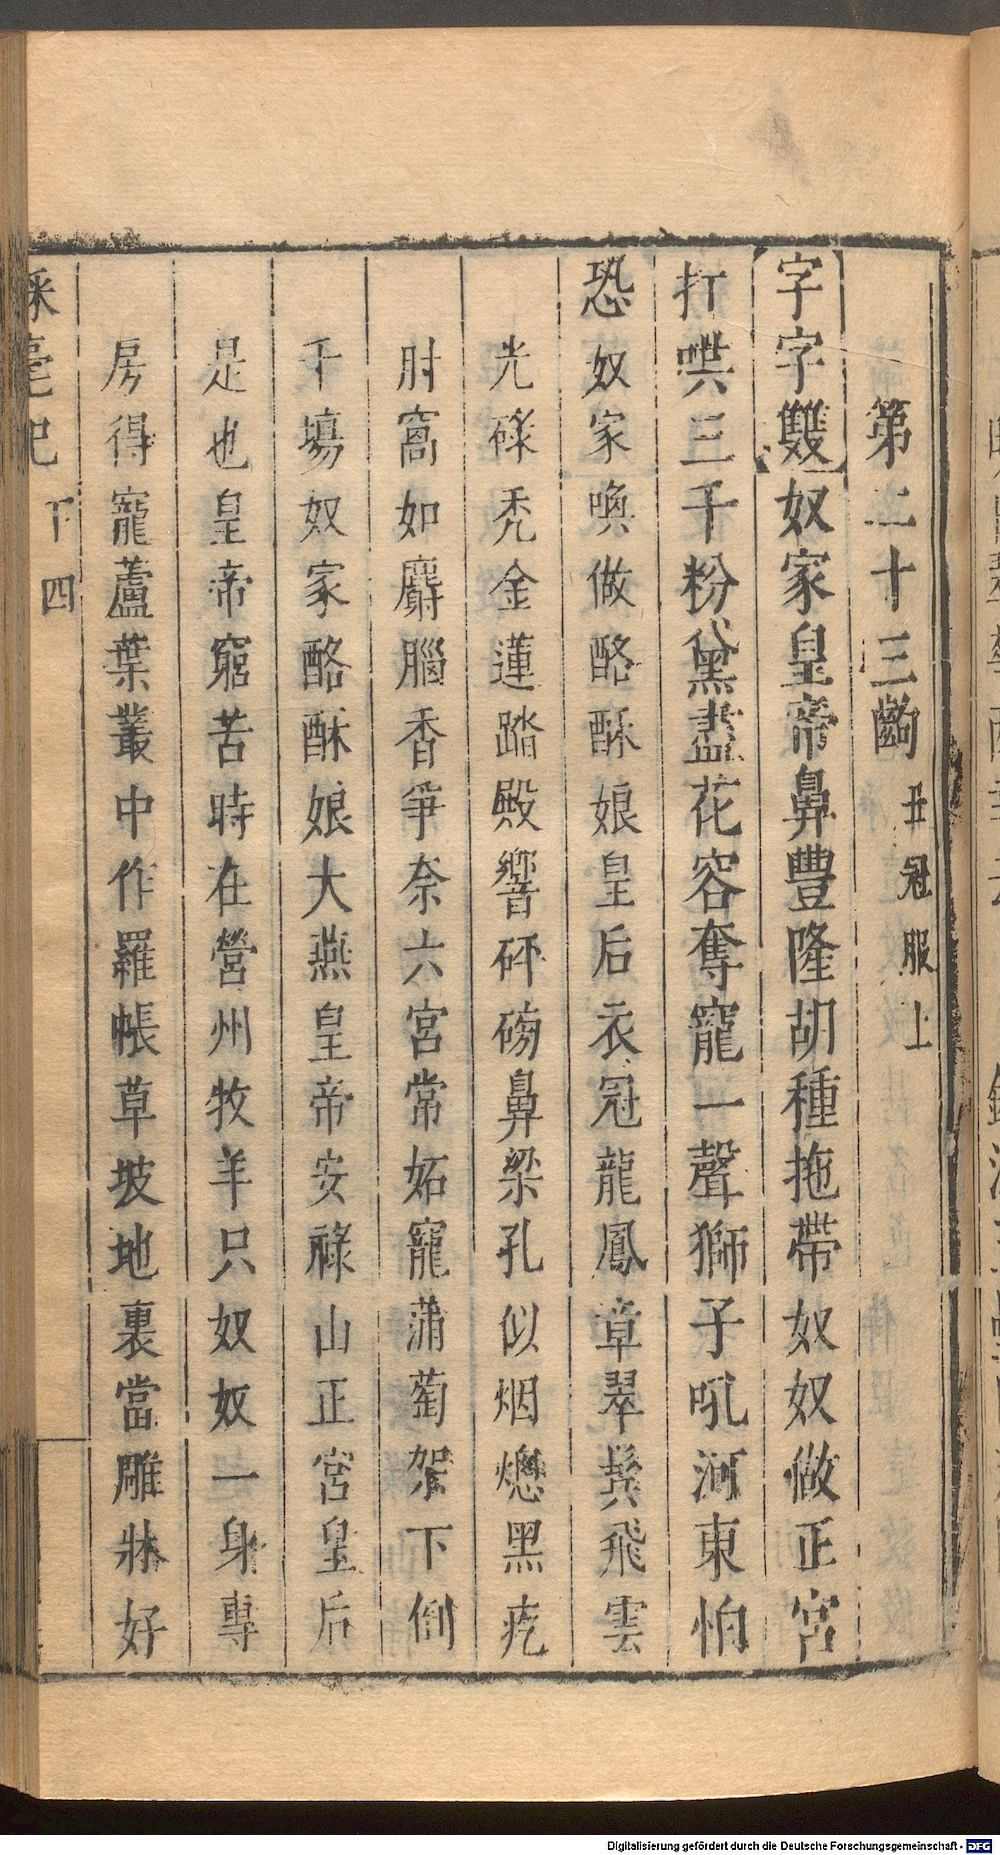 第二十三齣 丑冠服上
字字雙奴家皇帝鼻豐隆胡種拖帶奴奴做正宮
打哄三千粉黛盡花容奪寵一聲獅子吼河東怕
恐奴家喚做酪酥娘皇后衣冠龍鳳章翠鬓飛雲
光碌禿金蓮踏殿響砰磅鼻梁孔似烟熜黑疙
肘窩如麝腦香爭奈六宮常妬寵蒲萄架下倒
千場奴家酪酥娘大燕皇帝安祿山正宮皇后
是也皇帝窮苦時在營州牧羊只奴奴一身專
房得寵蘆葉叢中作羅帳草坡地裏當雕牀好
彩毫記 下 四
Digitalisierung gefördert durch die Deutsche Forschungsgemeinschaft - DFG